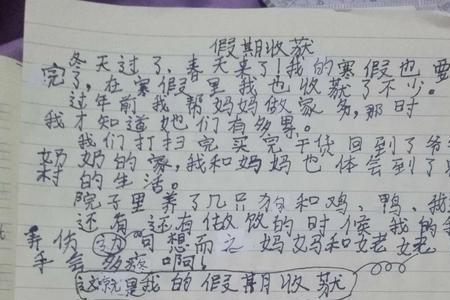 假期收获
冬天过了,春天来了!我的寒假也要
完了,在寒假里我也收获了不少。
过年前我帮妈妈做家务,那时
我才知道她们有多累。
我们打扫完买完干货回到了爷
奶奶的家,我和妈妈也体会到了
村的生活。
院子里养了几只狗和鸡、鸭、我
还有还有做饭的时候 我的
弄伤 可想而之 妈妈和姥姥
手会多疼啊!
这就是我的假期收获